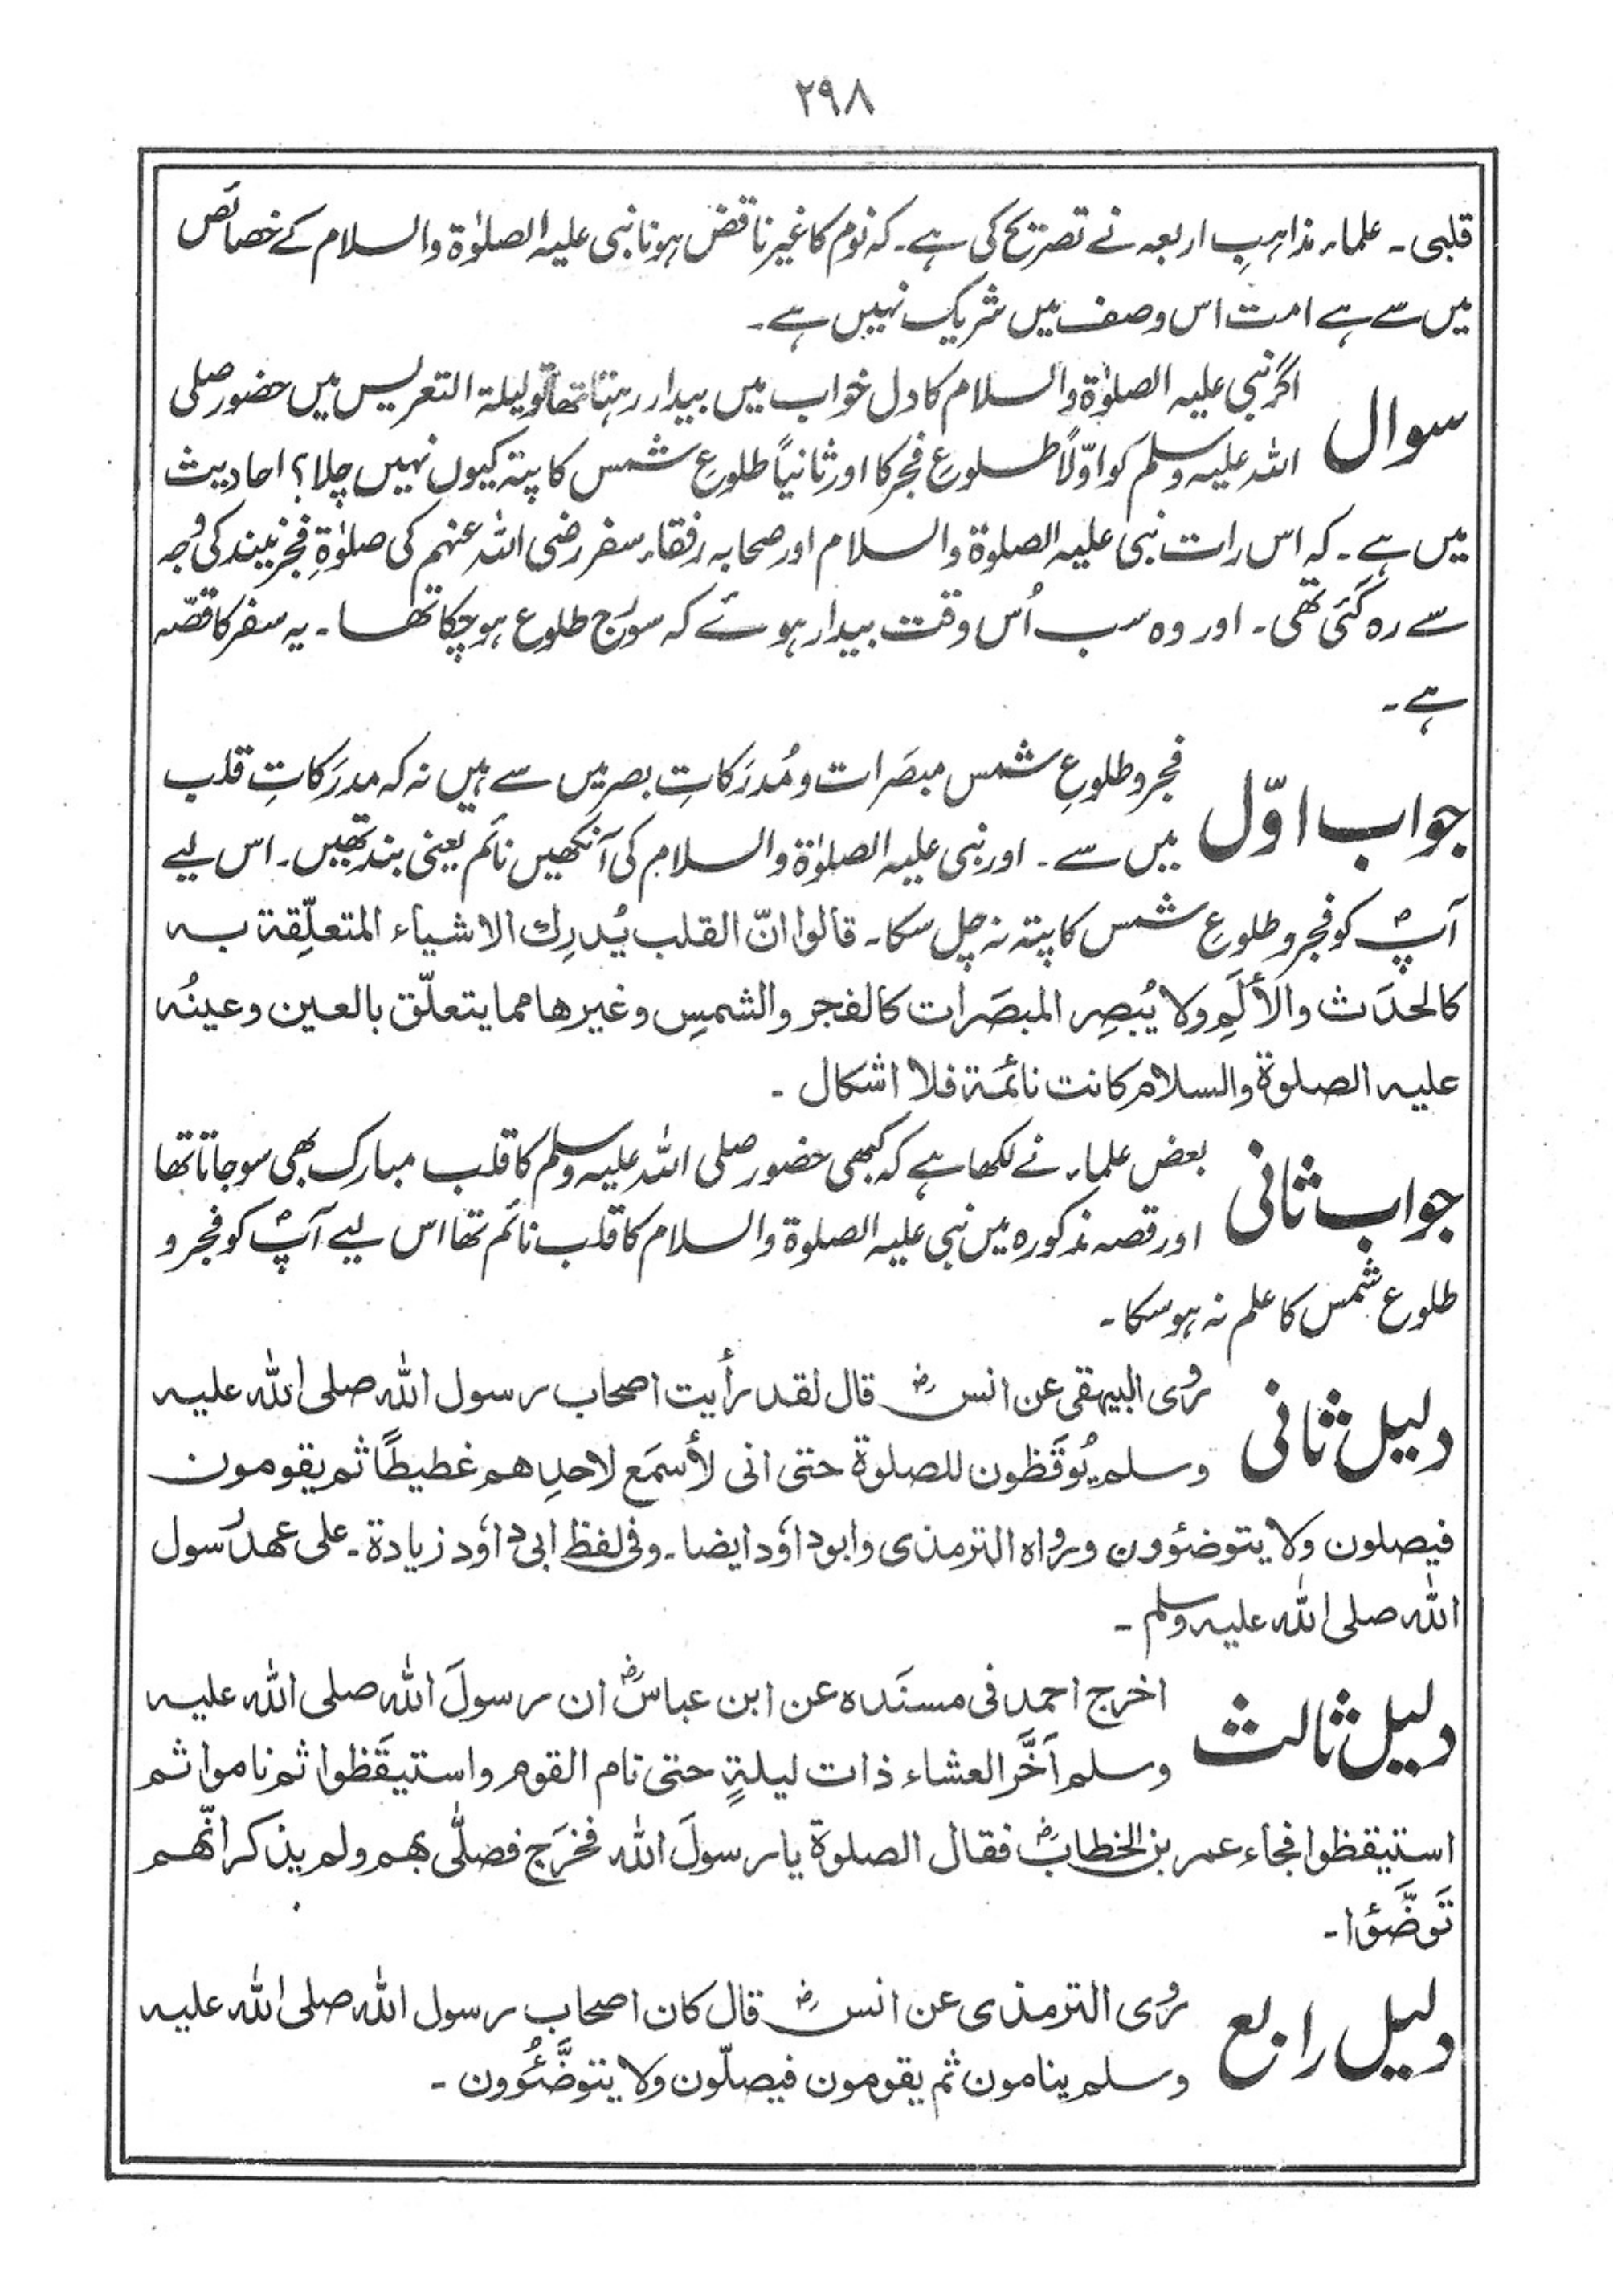 ۲۹۸
قلبی ۔ علماء مذاہبِ اربعہ نے تصریح کی ہے۔ کہ نوم کا غیر ناقض ہونا نبی علیہ الصلوٰۃ والسلام کے خصائص
میں سے ہے امت اس وصف میں شریک نہیں ہے۔
سوال اگر نبی علیہ الصلوٰۃ والسلام کا دل خواب میں بیدار رہتا تھا تو لیلۃ التعریس میں حضور صلی
اللہ علیہ وسلم کو اوّلاً طلوعِ فجر کا اور ثانیاً طلوعِ شمس کا پتہ کیوں نہیں چلا؟ احادیث
میں ہے۔ کہ اس رات نبی علیہ الصلوۃ والسلام اور صحابہ رفقاء سفر رضی اللہ عنہم کی صلوٰۃِ فجر نیند کی وجہ
سے رہ گئی تھی۔ اور وہ سب اُس وقت بیدار ہوئے کہ سورج طلوع ہوچکا تھا ۔ یہ سفر کا قصّہ
ہے ۔
جواب اوّل فجر و طلوعِ شمس مبصَرات و مُدرَکاتِ بصر میں سے ہیں نہ کہ مدرَکاتِ قلب
میں سے ۔ اور نبی علیہ الصلوٰۃ والسلام کی آنکھیں نائم یعنی بند تھیں۔ اس لیے
آپؐ کو فجر و طلوعِ شمس کا پتہ نہ چل سکا۔ قالوا انّ القلب یُدرِك الاشیاء المتعلِّقة به
کالحدَث والألَمِ ولا یُبصِر المبصَرات کالفجر والشمسِ وغیرها مما یتعلّق بالعین وعینُه
علیه الصلوة والسلام کانت نائمَة فلا اشکال ۔
جواب ثانی بعض علماء نے لکھا ہے کہ کبھی حضور صلی اللہ علیہ وسلم کا قلب مبارک بھی سوجاتا تھا
اور قصہ مذکورہ میں نبی علیہ الصلوۃ والسلام کا قلب نائم تھا اس لیے آپؐ کو فجر و
طلوع شمس کا علم نہ ہوسکا ۔
دلیل ثانی رُوی البیهقی عن انسؓ قال لقد رأیت اصحاب رسول اللّٰه صلی اللّٰه علیه
وسلم یُوقَظون للصلوة حتی انی لأسمَع لاحدِهم غطیطًا ثم یقومون
فیصلون ولا یتوضئوون ورواه الترمذی وابوداوٗد ایضا۔ وفی لفظ ابی داوٗد زیادة۔ علی عهد رسول
اللّٰه صلی اللّٰه علیه وسلم ۔
دلیل ثالث اخرج احمد فی مسنَده عن ابن عباسؓ ان رسولَ اللّٰه صلی اللّٰه علیه
وسلم اَخَّر العشاء ذات لیلةٍ حتی نام القوم واستیقَظوا ثم ناموا ثم
استیقظوا فجاء عمر بن الخطابؓ فقال الصلوة یا رسولَ اللّٰه فخرَج فصلّٰی بهم ولم یذکر انّهم
تَوضَّئوا۔
دلیل رابع رُوی الترمذی عن انسؓ قال کان اصحاب رسول اللّٰه صلی اللّٰه علیه
وسلم ینامون ثم یقومون فیصلّون ولا یتوضَّئُوون ۔